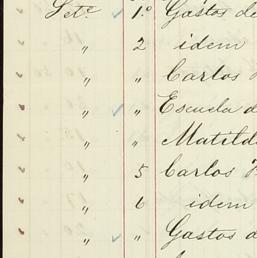 Set.e 1.º Gastos de
" 2 idem
" " Carlos
" " Escuela d
" " Matild
" 5 Carlos
" 6 idem
" " Gastos d